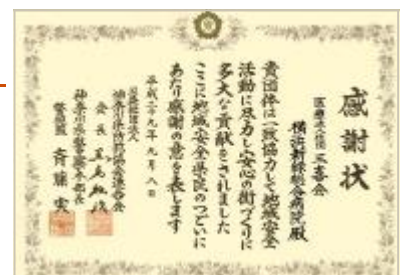 感謝状
医療法人社団 三喜会
横浜新緑総合病院 殿
貴団体は一致協力して地域安全
活動に尽力し安心の街づくりに
多大な貢献をされました
ここに地域安全県民のつどいに
あたり感謝の意を表します
平成二十九年九月八日
公益社団法人
神奈川県防犯協会連合会
会長
神奈川県警察本部長
警視監 斉藤 実